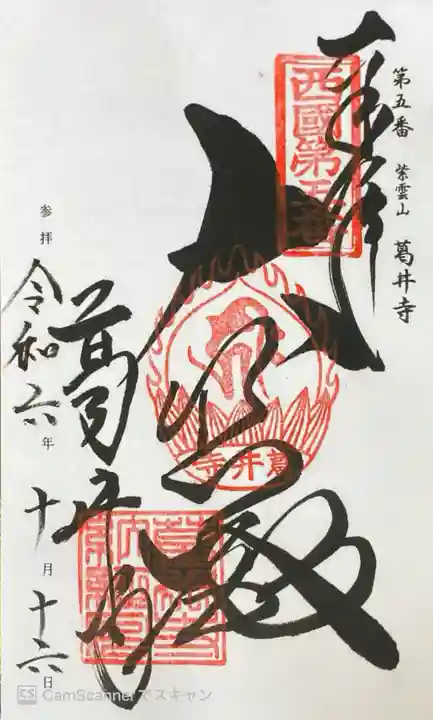 第五番 紫雲山 葛井寺
奉拝
西國第五番
大悲殿
葛井寺
葛井寺
参拝
令和六年十月十六日
CS CamScannerでスキャン